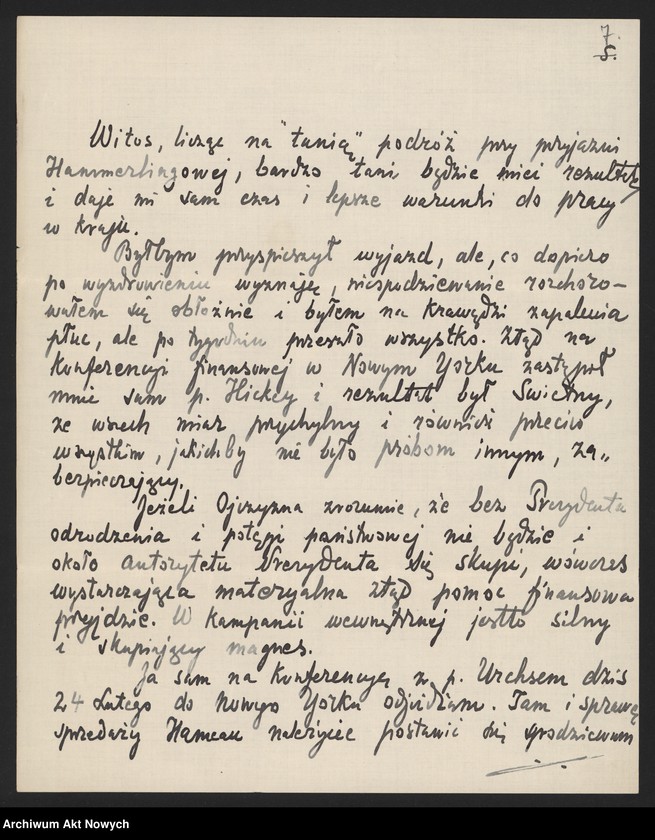 7.
5.
Witos, licząc na "tanią" podróż przy przyjaźni
Hammerlingowej, bardzo tani będzie mieć rezultat
i daje mi sam czas i lepsze warunki do pracy
w kraju.
Byłbym przyspieszył wyjazd, ale, co dopiero
po wyzdrowieniu wyznaję, niespodziewanie rozchoro-
wałem się obłożnie i byłem na krawędzi zapalenia
płuc, ale po tygodniu przeszło wszystko. Ztąd na
Konferencyi finansowej w Nowym Yorku zastąpił
mnie sam p. Hickey i rezultat był świetny,
ze wszech miar przychylny i również przeciw
wszystkim, jakichby nie było próbom innym, za„
bezpieczający.
Jeżeli Ojczyzna zrozumie, że bez Prezydenta
odrodzenia i potęgi państwowej nie będzie i
około Autorytetu Prezydenta się skupi, wówczas
wystarczająca materyalna ztąd pomoc finansowa
przyjdzie. W kampanii wewnętrznej jestto silny
i skupiający magnes.
Ja sam na konferencyę z p. Urchsem dziś
24 Lutego do Nowego Yorku odjeżdżam. Tam i sprawę
sprzedaży Hameau należycie postawić się spodziewam
Archiwum Akt Nowych